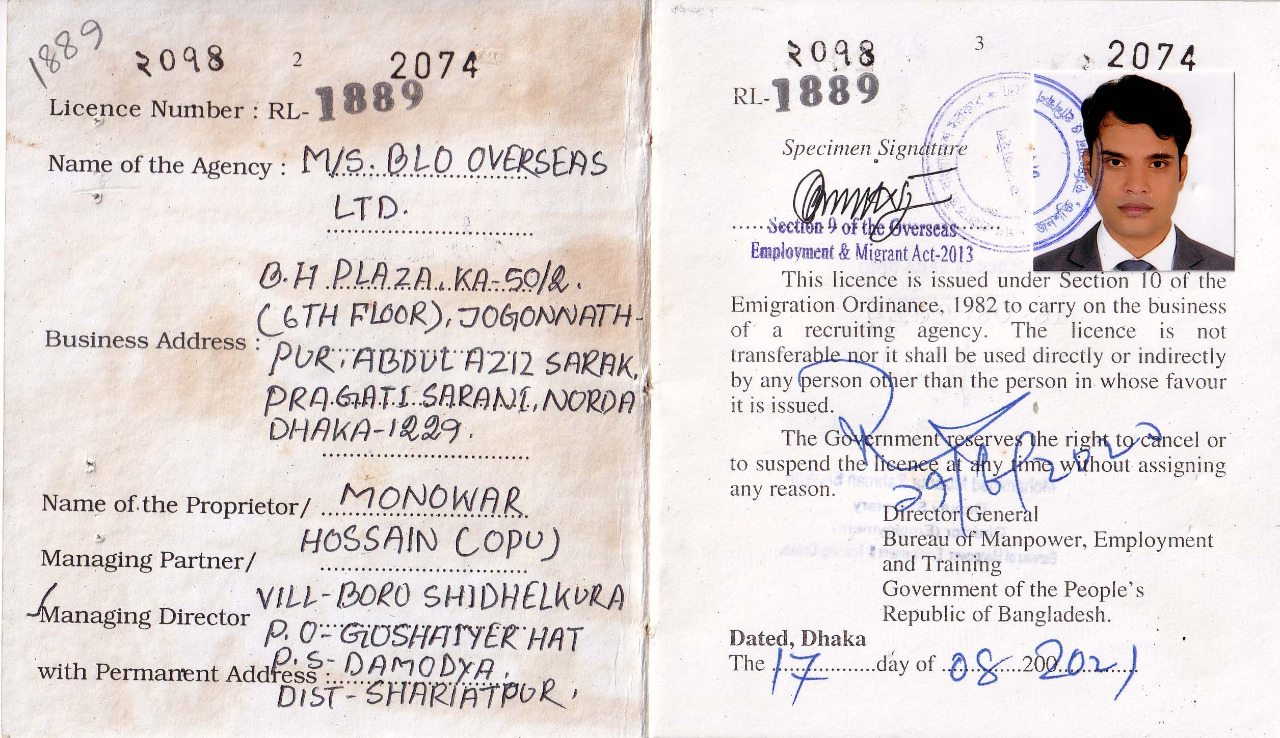 1889
২০৭৪
2
2074
Licence Number : RL-1889
Name of the Agency : M/S. BLO OVERSEAS
LTD.
Business Address :
B.H PLAZA. KA-50/2.
(6TH FLOOR), JOGONNATH-
PUR, ABDUL AZIZ SARAK,
PRAGATI SARANI, NORDA
DHAKA-1229.
Name of the Proprietor/ MONOWAR
HOSSAIN (OPU)
Managing Partner/
Managing Director VILL-BORO SHIDHELKURA
P.O-GOSHAIYER HAT
with Permanent Address : P.S-DAMODYA,
DIST-SHARIATPUR,
3
2074
RL-1889
Specimen Signature
Section 9 of the Overseas
Employment & Migrant Act-2013
This licence is issued under Section 10 of the
Emigration Ordinance, 1982 to carry on the business
of a recruiting agency. The licence is not
transferable nor it shall be used directly or indirectly
by any person other than the person in whose favour
it is issued.
The Government reserves the right to cancel or
to suspend the licence at any time without assigning
any reason.
Director General
Bureau of Manpower, Employment
and Training
Government of the People's
Republic of Bangladesh.
Dated, Dhaka
The 17 day of 08 200 2021